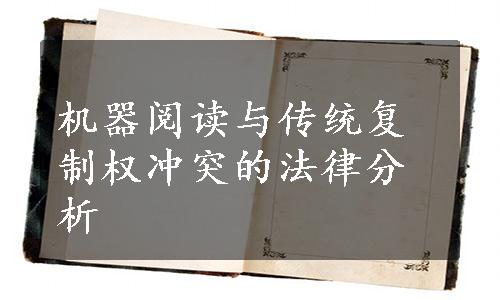 机器阅读与传统复
制权冲突的法律分
析